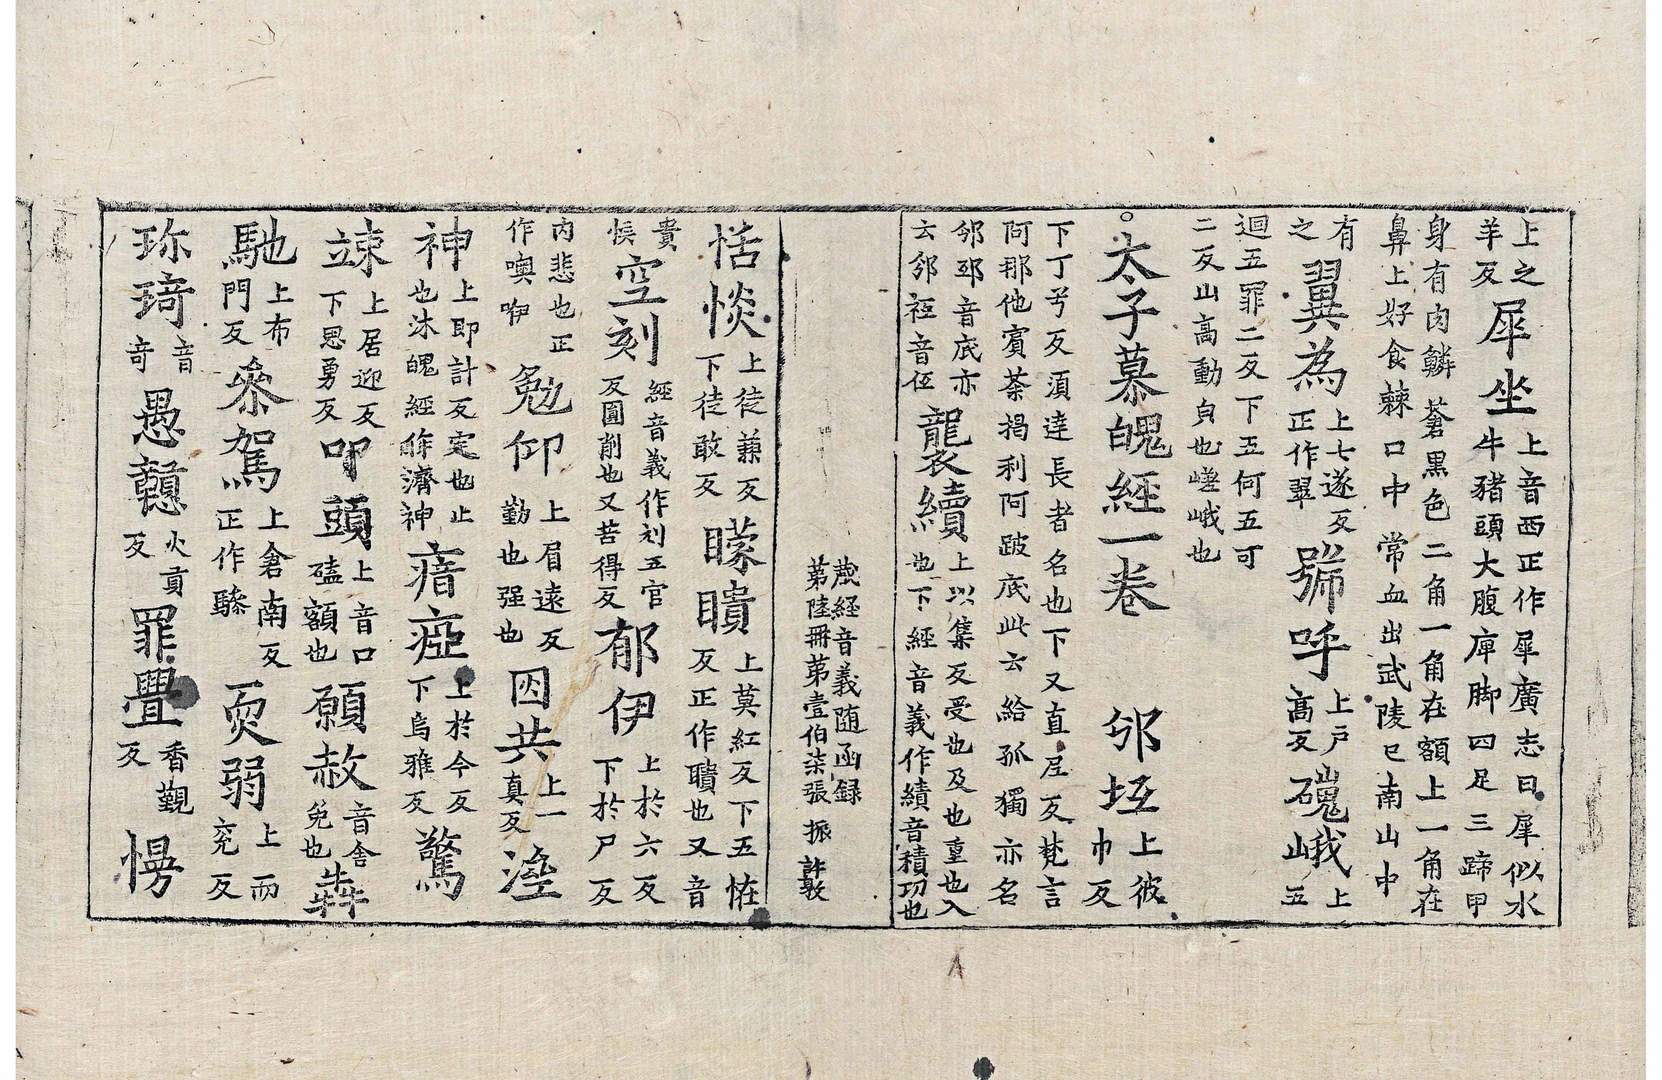 上之羊反犀坐上音西正作犀廣志曰犀似水牛猪頭大腹庳脚四足三蹄甲
身有肉鱗蒼黑色二角一角在額上一角在鼻上好食棘口中常血出武陵巳南山中
有之翼為上七遂反正作翠號呼上戸高反磈峨上五
迴五罪二反下五何五可二反山高動皃也嵯峨也
。太子慕魄經一卷 邠坻上彼巾反
下丁兮反須達長者名也下又直尼反梵言阿那他賓荼揭利阿跛底此云給孤獨亦名
邠邳音底亦云邠祁音伍襲續上以集反受也及也重也入也下經音義作績音積功也
藏經音義随函録
第陸冊第壹伯柒張 振 許敦
恬惔上徒兼反下徒敢反矇瞶上莫紅反下五恠反正作聵也又音
貴悞空刻經音義作刻五官反圓削也又苦得反郁伊上於六反下於尸反
内悲也正作噢咿勉仰上眉遠反勤也强也因共上一真反瀅
神上即計反定也止也沐魄經作濟神瘖瘂上於今反下烏雅反驚
竦上居迎反下思勇反叩頭上音口磕額也願赦音舎免也犇
馳上布門反叅駕上倉南反正作驂耎弱上而兖反
珎琦音竒愚戇火貢反罪舋香覲反愕